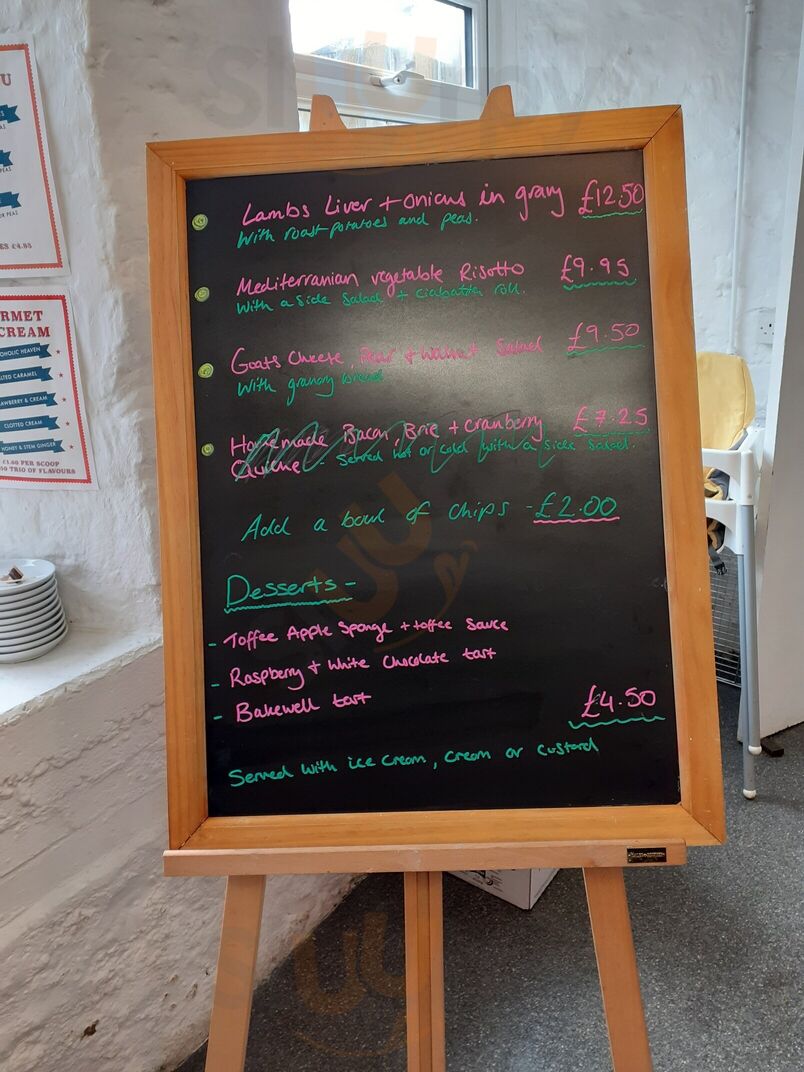 Lambs Liver + onions in gravy £12.50
With roast potatoes and peas.
Mediterranian vegetable Risotto £9.95
With a side salad + ciabatta roll.
Goats Cheese, Pear + Walnut Salad £9.50
With granary bread
Homemade Bacon, Brie + cranberry £7.25
Quiche - Served hot or cold with a side salad.
Add a bowl of chips - £2.00
Desserts -
- Toffee Apple Sponge + toffee sauce
- Raspberry + White Chocolate tart
- Bakewell tart
£4.50
Served with ice cream, cream or custard
U
PEAS
OR PEAS
ES £4.95
RMET
CREAM
OHOLIC HEAVEN
LTED CARAMEL
AWBERRY & CREAM
CLOTTED CREAM
HONEY & STEM GINGER
£1.60 PER SCOOP
50 TRIO OF FLAVOURS